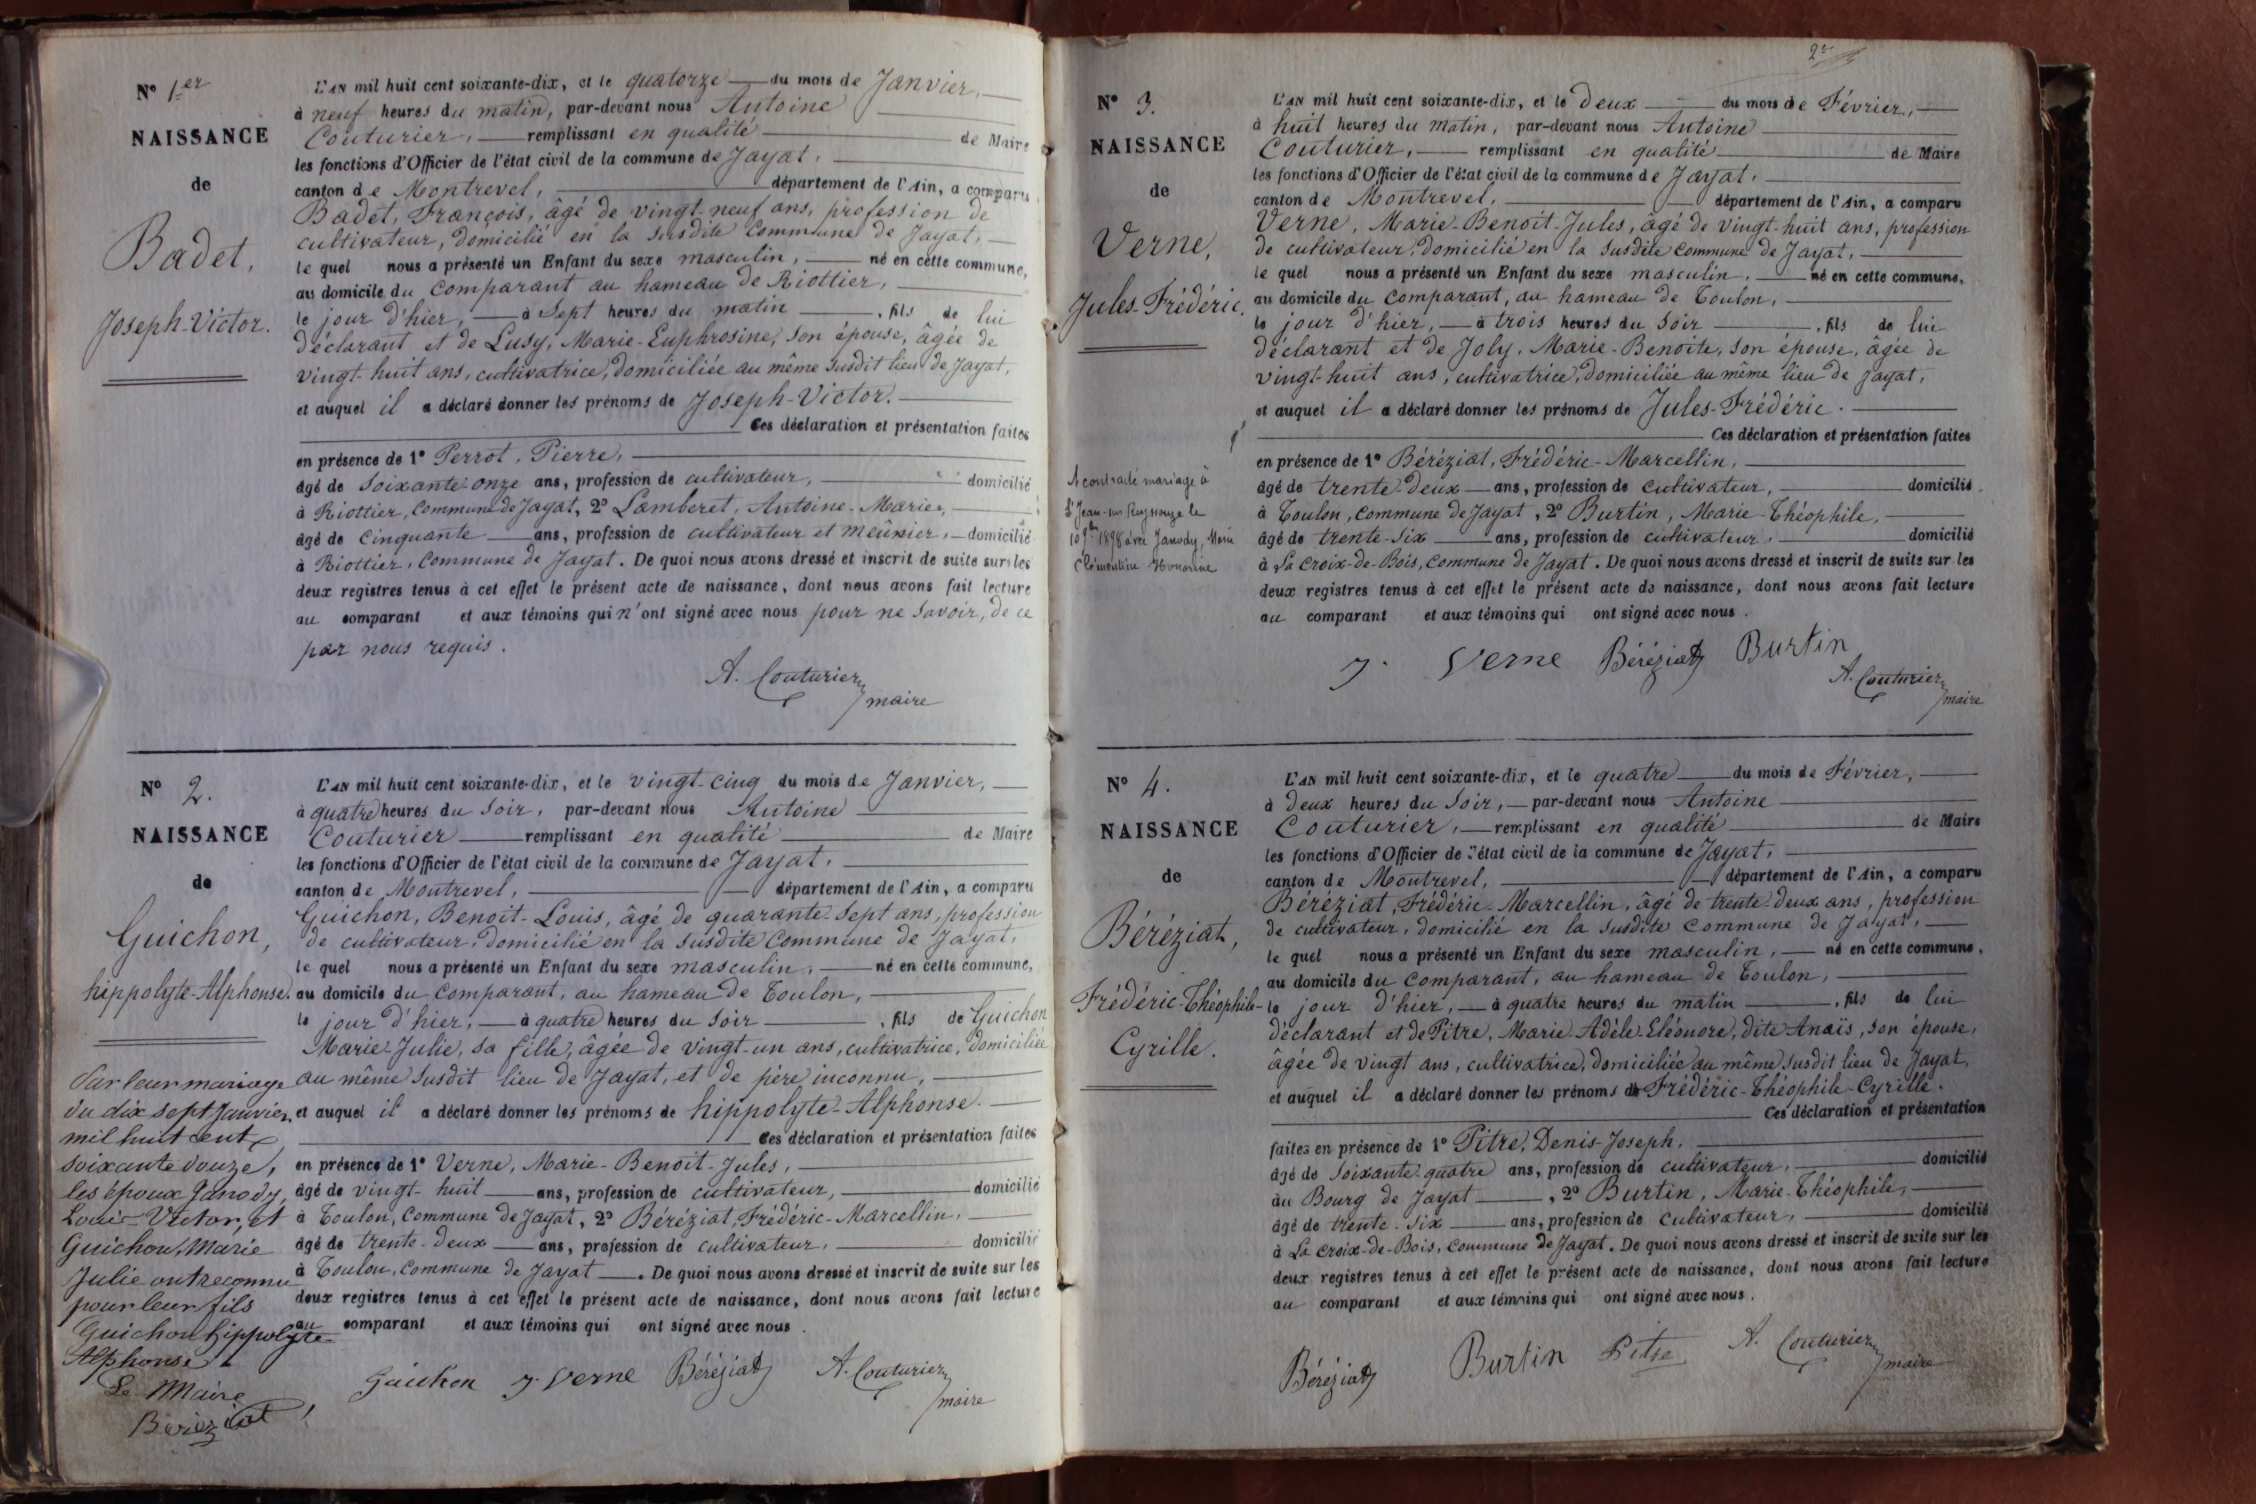 N° 1er
NAISSANCE
de
Badet,
Joseph-Victor.
L'AN mil huit cent soixante-dix, et le quatorze du mois de Janvier,
à neuf heures du matin, par-devant nous Antoine
Couturier, remplissant en qualité de Maire
les fonctions d'Officier de l'état civil de la commune de Jayat,
canton de Montrevel, département de l'Ain, a comparu
Badet, François, âgé de vingt-neuf ans, profession de
cultivateur, domicilié en la susdite Commune de Jayat,
le quel nous a présenté un Enfant du sexe masculin, né en cette commune,
au domicile du Comparant au hameau de Riottier,
le jour d'hier, à Sept heures du matin, fils de lui
déclarant et de Lusy, Marie-Euphrosine, son épouse, âgée de
vingt-huit ans, cultivatrice, domiciliée au même susdit lieu de Jayat,
et auquel il a déclaré donner les prénoms de Joseph-Victor.
Ces déclaration et présentation faites
en présence de 1° Perrot, Pierre,
âgé de Soixante-onze ans, profession de cultivateur, domicilié
à Riottier, Commune de Jayat, 2° Lamberet, Antoine-Marie,
âgé de Cinquante ans, profession de cultivateur et meûnier, domicilié
à Riottier, Commune de Jayat. De quoi nous avons dressé et inscrit de suite sur les
deux registres tenus à cet effet le présent acte de naissance, dont nous avons fait lecture
au comparant et aux témoins qui n'ont signé avec nous pour ne savoir, de ce
par nous requis.
A. Couturier
maire
N° 2.
NAISSANCE
de
Guichon,
hippolyte-Alphonse.
Par leur mariage
du dix sept Janvier
mil huit cent
soixante douze,
les époux Janody,
Louis-Victor, et
Guichon, Marie
Julie ont reconnu
pour leur fils
Guichon hippolyte
Alphonse
Le Maire
Béréziat
L'AN mil huit cent soixante-dix, et le vingt-cinq du mois de Janvier,
à quatre heures du Soir, par-devant nous Antoine
Couturier remplissant en qualité de Maire
les fonctions d'Officier de l'état civil de la commune de Jayat,
canton de Montrevel, département de l'Ain, a comparu
Guichon, Benoit-Louis, âgé de quarante-Sept ans, profession
de cultivateur, domicilié en la susdite Commune de Jayat,
le quel nous a présenté un Enfant du sexe masculin, né en cette commune,
au domicile du Comparant, au hameau de Toulon,
le jour d'hier, à quatre heures du Soir, fils de Guichon
Marie-Julie, sa fille, âgée de vingt-un ans, cultivatrice, domiciliée
au même susdit lieu de Jayat, et de père inconnu,
et auquel il a déclaré donner les prénoms de hippolyte-Alphonse.
Ces déclaration et présentation faites
en présence de 1° Verne, Marie-Benoit-Jules,
âgé de vingt-huit ans, profession de cultivateur, domicilié
à Toulon, Commune de Jayat, 2° Béréziat, Frédéric-Marcellin,
âgé de trente-deux ans, profession de cultivateur, domicilié
à Toulon, Commune de Jayat. De quoi nous avons dressé et inscrit de suite sur les
deux registres tenus à cet effet le présent acte de naissance, dont nous avons fait lecture
au comparant et aux témoins qui ont signé avec nous.
Guichon J. Verne Béréziat A. Couturier
maire
2e
N° 3.
NAISSANCE
de
Verne,
Jules-Frédéric.
A contracté mariage à
St Jean-sur Reyssouze le
10 1898 avec Janody, Marie
Clémentine Honorine
L'AN mil huit cent soixante-dix, et le deux du mois de Février,
à huit heures du matin, par-devant nous Antoine
Couturier, remplissant en qualité de Maire
les fonctions d'Officier de l'état civil de la commune de Jayat,
canton de Montrevel, département de l'Ain, a comparu
Verne, Marie-Benoit-Jules, âgé de vingt-huit ans, profession
de cultivateur, domicilié en la susdite Commune de Jayat,
le quel nous a présenté un Enfant du sexe masculin, né en cette commune,
au domicile du Comparant, au hameau de Toulon,
le jour d'hier, à trois heures du Soir, fils de lui
déclarant et de Joly, Marie-Benoite, son épouse, âgée de
vingt-huit ans, cultivatrice, domiciliée au même lieu de Jayat,
et auquel il a déclaré donner les prénoms de Jules-Frédéric.
Ces déclaration et présentation faites
en présence de 1° Béréziat, Frédéric-Marcellin,
âgé de trente-deux ans, profession de cultivateur, domicilié
à Toulon, Commune de Jayat, 2° Burtin, Marie-Théophile,
âgé de trente-Six ans, profession de cultivateur, domicilié
à La Croix-de-Bois, Commune de Jayat. De quoi nous avons dressé et inscrit de suite sur les
deux registres tenus à cet effet le présent acte de naissance, dont nous avons fait lecture
au comparant et aux témoins qui ont signé avec nous.
J. Verne Béréziat Burtin
A. Couturier
maire
N° 4.
NAISSANCE
de
Béréziat,
Frédéric-Théophile-
Cyrille.
L'AN mil huit cent soixante-dix, et le quatre du mois de Février,
à deux heures du Soir, par-devant nous Antoine
Couturier, remplissant en qualité de Maire
les fonctions d'Officier de l'état civil de la commune de Jayat,
canton de Montrevel, département de l'Ain, a comparu
Béréziat, Frédéric-Marcellin, âgé de trente-deux ans, profession
de cultivateur, domicilié en la susdite Commune de Jayat,
le quel nous a présenté un Enfant du sexe masculin, né en cette commune,
au domicile du Comparant, au hameau de Toulon,
le jour d'hier, à quatre heures du matin, fils de lui
déclarant et de Pitre, Marie-Adèle-Eléonore, dite Anaïs, son épouse,
âgée de vingt ans, cultivatrice, domiciliée au même susdit lieu de Jayat,
et auquel il a déclaré donner les prénoms de Frédéric-Théophile-Cyrille.
Ces déclaration et présentation
faites en présence de 1° Pitre, Denis-Joseph,
âgé de Soixante-quatre ans, profession de cultivateur, domicilié
au Bourg de Jayat, 2° Burtin, Marie-Théophile,
âgé de trente-Six ans, profession de cultivateur, domicilié
à La Croix-de-Bois, Commune de Jayat. De quoi nous avons dressé et inscrit de suite sur les
deux registres tenus à cet effet le présent acte de naissance, dont nous avons fait lecture
au comparant et aux témoins qui ont signé avec nous.
Béréziat Burtin Pitre A. Couturier
maire